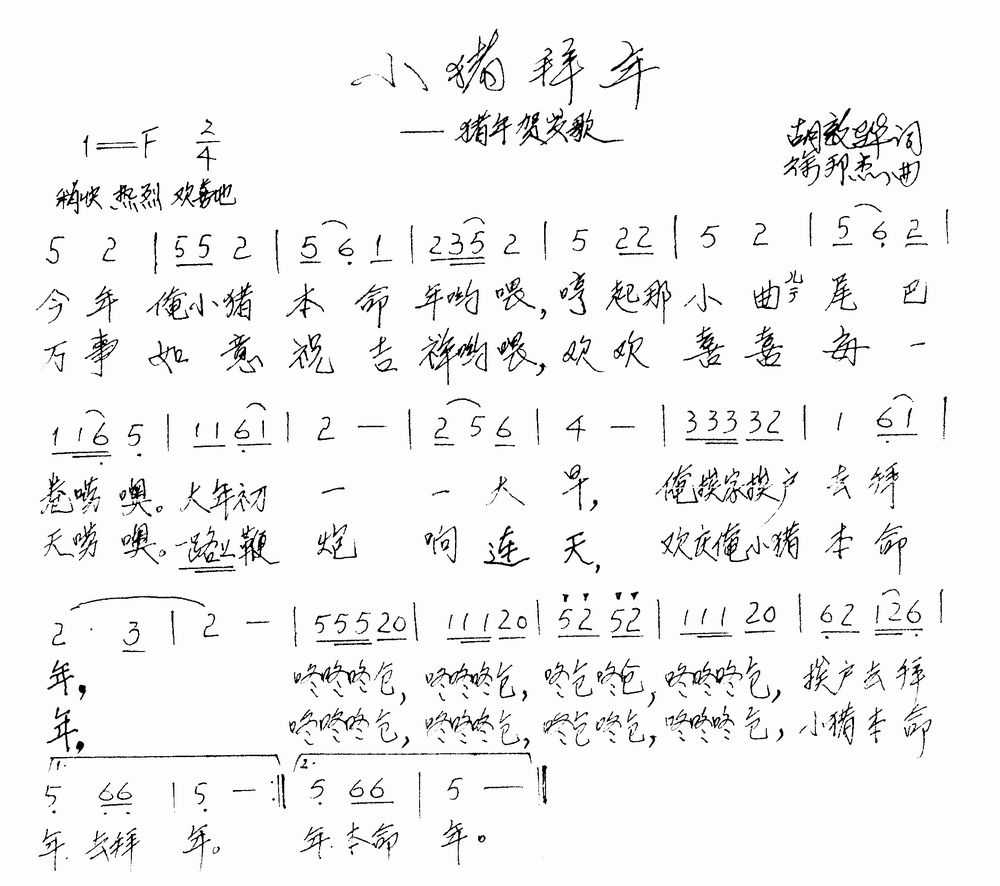 小猪拜年
——猪年贺岁歌
1=F 2/4
胡敦华词
徐邦杰曲
稍快 热烈 欢喜地
5 2 | 55 2 | 5 6 1 | 235 2 | 5 22 | 5 2 | 5 6 2 |
今年 俺小猪 本命 年哟喂,哼起那 小曲儿 尾巴
万事 如意 祝吉 祥哟喂,欢欢 喜喜 每一
116 5 | 11 61 | 2 — | 2 5 6 | 4 — | 333 32 | 1 61 |
卷唠噢。大年初 一 一大 早, 俺挨家挨户 去拜
天唠噢。一路上鞭 炮 响连 天, 欢庆俺小猪 本命
2 · 3 | 2 — | 555 20 | 111 20 | 52 52 | 111 20 | 62 126 |
年, 咚咚咚仓,咚咚咚仓,咚仓咚仓,咚咚咚仓, 挨户去拜
年, 咚咚咚仓,咚咚咚仓,咚仓咚仓,咚咚咚仓, 小猪本命
1. 2.
5 66 | 5 — :‖ 5 66 | 5 — ‖
年.去拜 年。 年.本命 年。